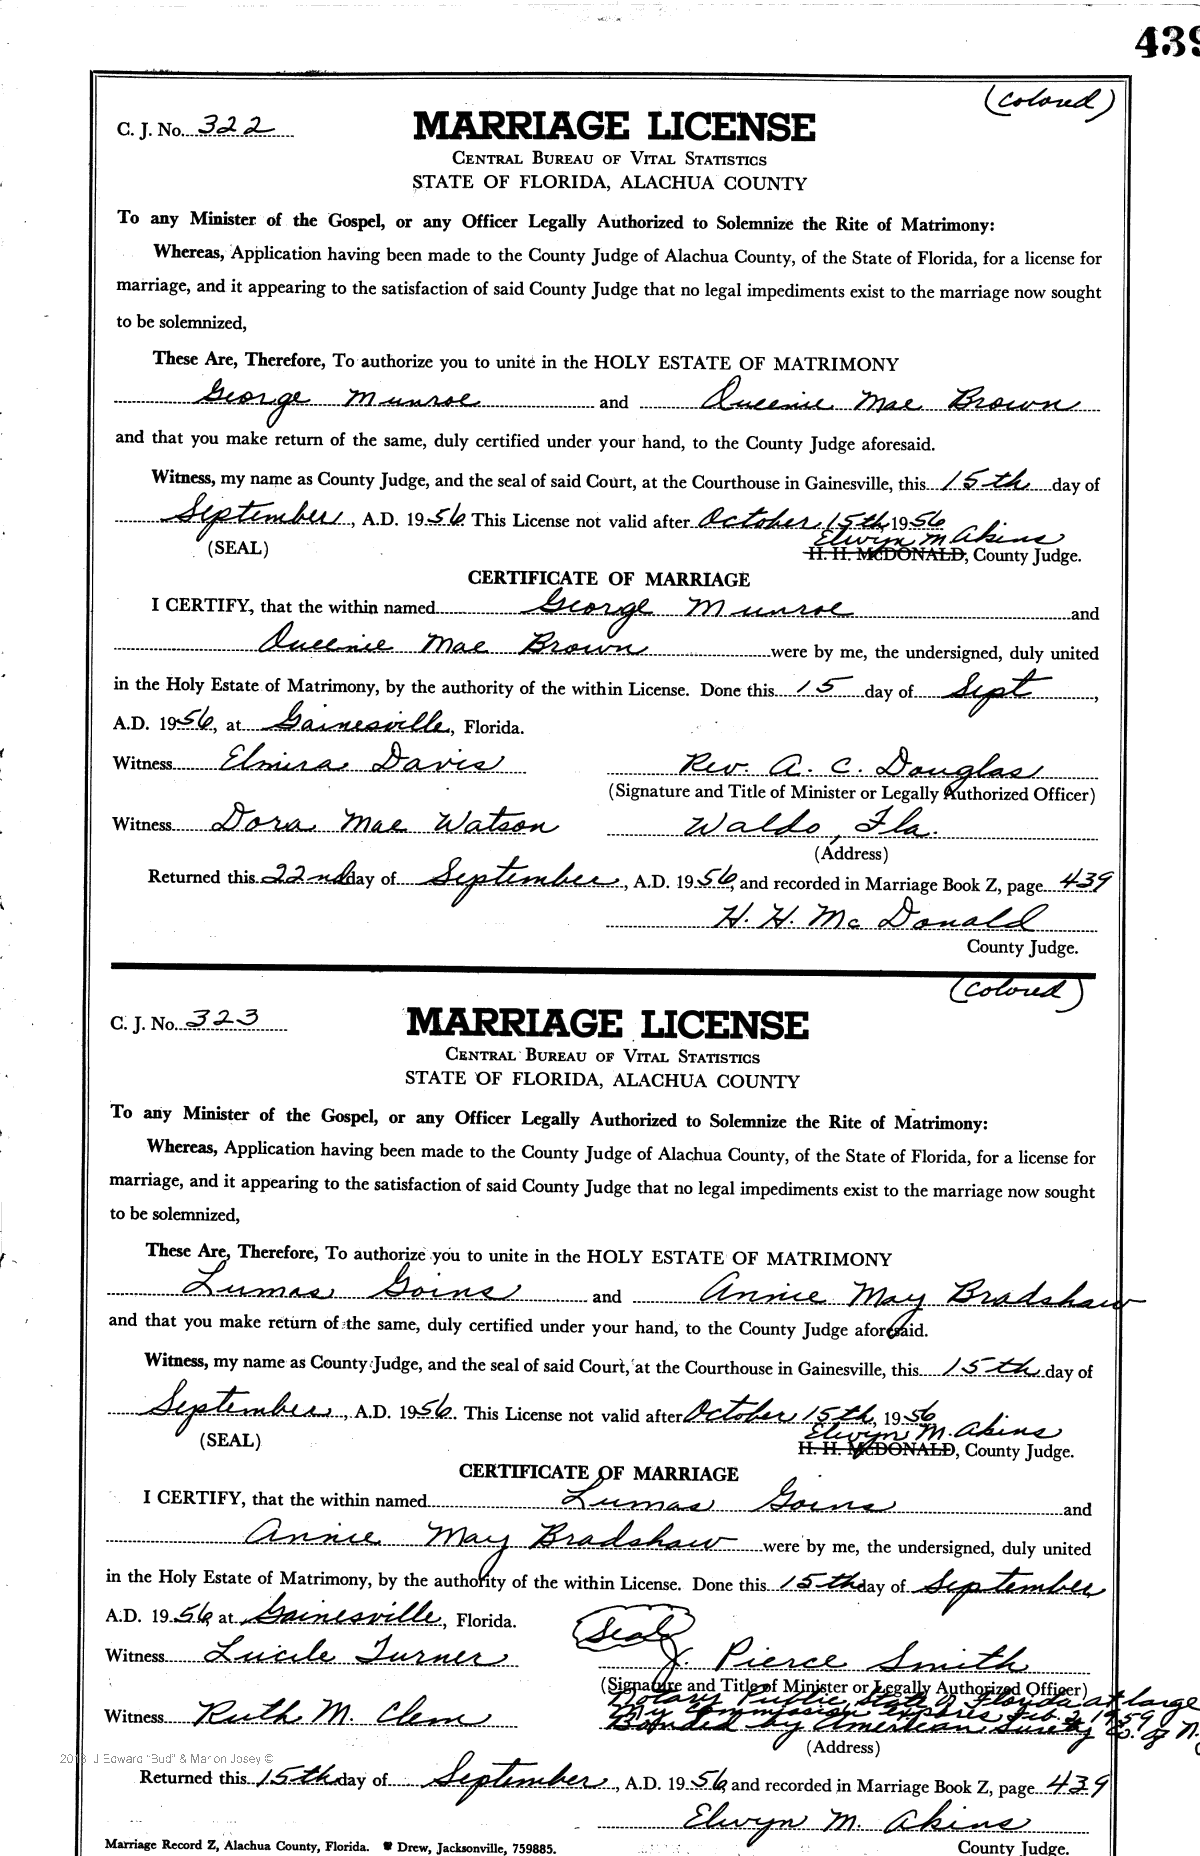 439
(colored)
C. J. No. 322
MARRIAGE LICENSE
CENTRAL BUREAU OF VITAL STATISTICS
STATE OF FLORIDA, ALACHUA COUNTY
To any Minister of the Gospel, or any Officer Legally Authorized to Solemnize the Rite of Matrimony:
Whereas, Application having been made to the County Judge of Alachua County, of the State of Florida, for a license for
marriage, and it appearing to the satisfaction of said County Judge that no legal impediments exist to the marriage now sought
to be solemnized,
These Are, Therefore, To authorize you to unite in the HOLY ESTATE OF MATRIMONY
George Munroe and Queenie Mae Brown
and that you make return of the same, duly certified under your hand, to the County Judge aforesaid.
Witness, my name as County Judge, and the seal of said Court, at the Courthouse in Gainesville, this 15th day of
September, A.D. 1956 This License not valid after October 15th, 1956
Elwyn M Akins
(SEAL) H. H. McDONALD, County Judge.
CERTIFICATE OF MARRIAGE
I CERTIFY, that the within named George Munroe and
Queenie Mae Brown were by me, the undersigned, duly united
in the Holy Estate of Matrimony, by the authority of the within License. Done this 15 day of Sept,
A.D. 1956, at Gainesville, Florida.
Witness Elmira Davis Rev. A. C. Douglas
(Signature and Title of Minister or Legally Authorized Officer)
Witness Dora Mae Watson Waldo, Fla.
(Address)
Returned this 22nd day of September, A.D. 1956, and recorded in Marriage Book Z, page 439
H. H. Mc Donald
County Judge.
(colored)
C. J. No. 323
MARRIAGE LICENSE
CENTRAL BUREAU OF VITAL STATISTICS
STATE OF FLORIDA, ALACHUA COUNTY
To any Minister of the Gospel, or any Officer Legally Authorized to Solemnize the Rite of Matrimony:
Whereas, Application having been made to the County Judge of Alachua County, of the State of Florida, for a license for
marriage, and it appearing to the satisfaction of said County Judge that no legal impediments exist to the marriage now sought
to be solemnized,
These Are, Therefore, To authorize you to unite in the HOLY ESTATE OF MATRIMONY
Lumas Goins and Annie May Bradshaw
and that you make return of the same, duly certified under your hand, to the County Judge aforesaid.
Witness, my name as County Judge, and the seal of said Court, at the Courthouse in Gainesville, this 15th day of
September, A.D. 1956. This License not valid after October 15th, 1956
Elwyn M. Akins
(SEAL) H. H. McDONALD, County Judge.
CERTIFICATE OF MARRIAGE
I CERTIFY, that the within named Lumas Goins and
Annie May Bradshaw were by me, the undersigned, duly united
in the Holy Estate of Matrimony, by the authority of the within License. Done this 15th day of September,
A.D. 1956, at Gainesville, Florida.
Seal
Witness Lucile Turner J. Pierce Smith
(Signature and Title of Minister or Legally Authorized Officer)
Notary Public, State of Florida at large
My Commission Expires Feb. 2, 1959
Witness Ruth M. Clem Bonded by American Surety Co. of N.
(Address)
2018 J Edward "Bud" & Marion Josey ©
Returned this 15th day of September, A.D. 1956, and recorded in Marriage Book Z, page 439
Elwyn M. Akins
Marriage Record Z, Alachua County, Florida. Drew, Jacksonville, 759885. County Judge.